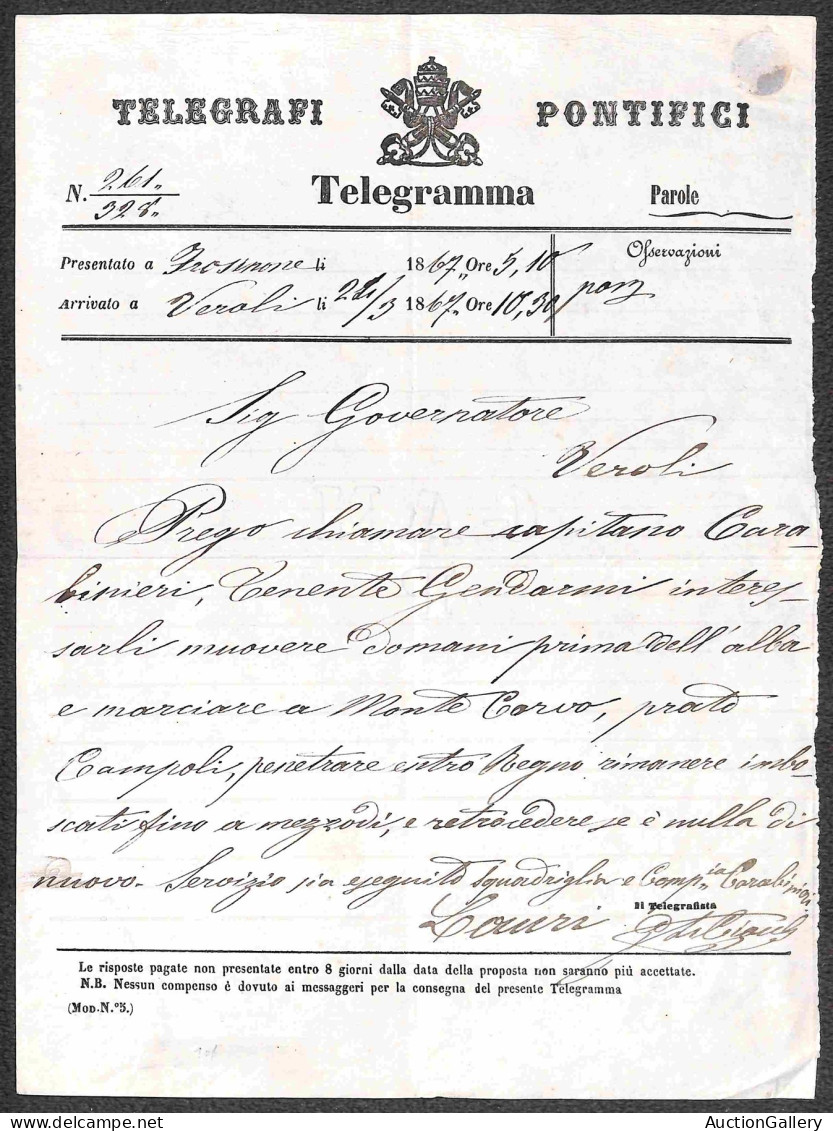 TELEGRAFI PONTIFICI
N. 261" / 328" Telegramma Parole
Presentato a Frosinone li 1867" Ore 5,10 Osservazioni
Arrivato a Veroli li 24/3 1867" Ore 10,30
Sig Governatore
Veroli
Prego chiamare capitano Cara-
binieri, Tenente Gendarmi interes-
sarli muovere domani prima dell'alba
e marciare a Monte Corvo, prato
Campoli, penetrare entro Regno rimanere imbo-
scati fino a mezzodì, e retrocedere se è nulla di
nuovo. Servizio sia eseguito squadriglia e Comp.ia Carabinieri
Il Telegrafista
Lauri
Le risposte pagate non presentate entro 8 giorni dalla data della proposta non saranno più accettate.
N.B. Nessun compenso é dovuto ai messaggeri per la consegna del presente Telegramma
(MOD. N.º 5.)
AuctionGallery